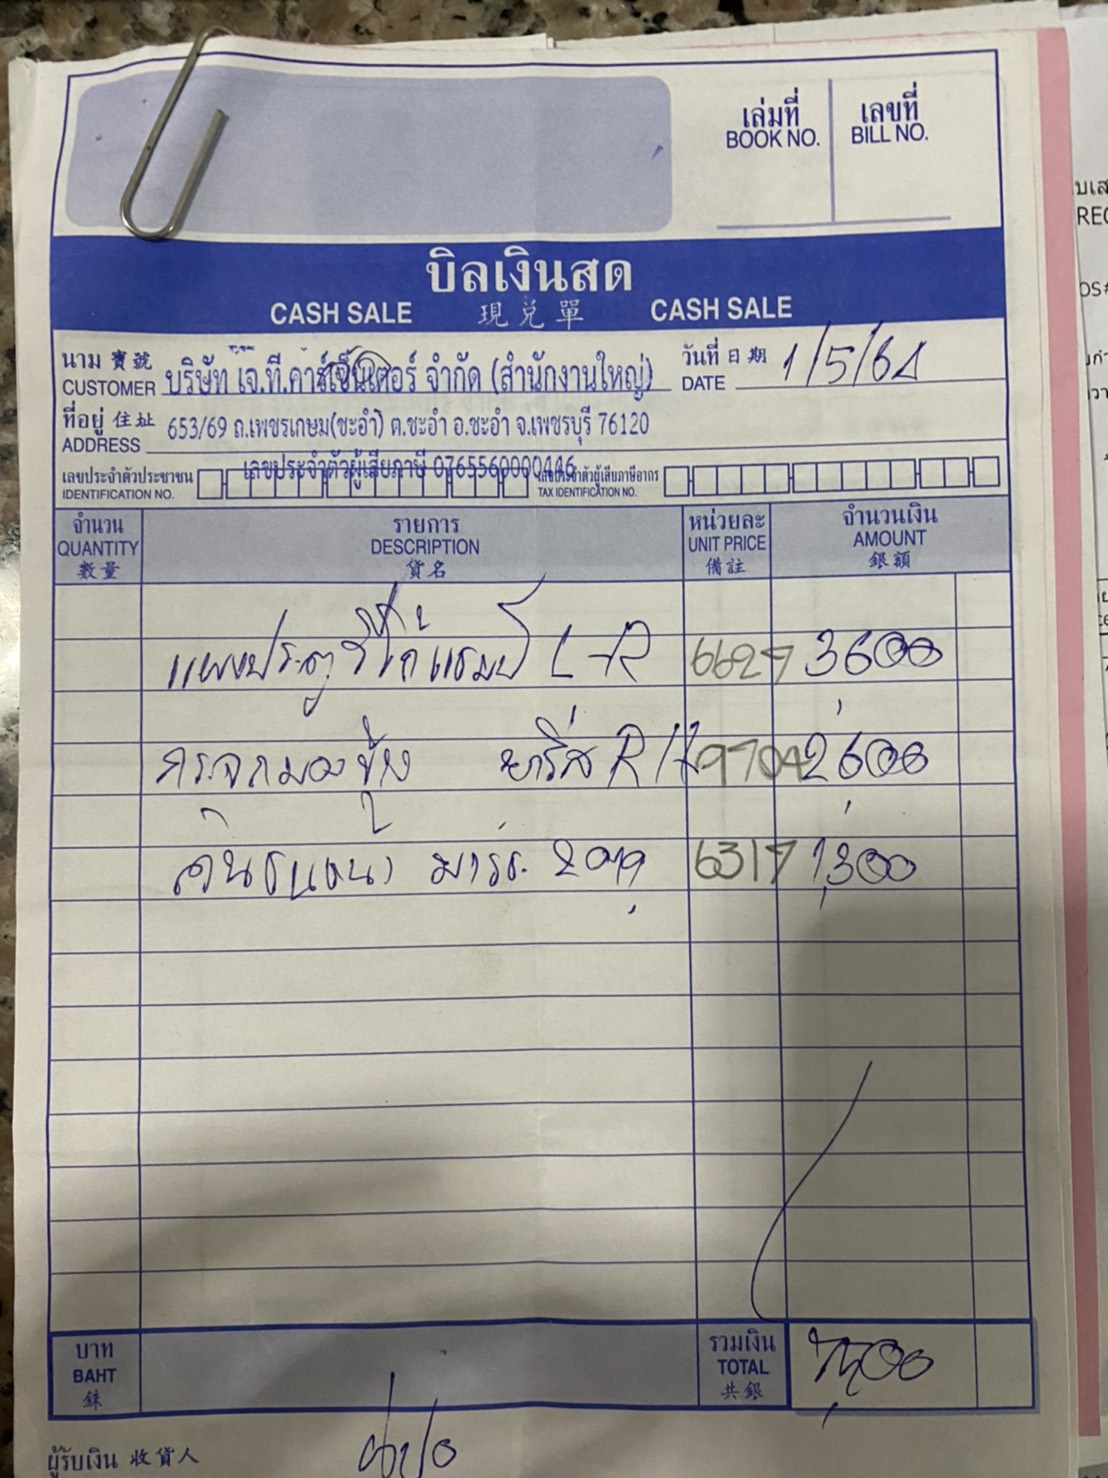 เล่มที่ เลขที่
BOOK NO. BILL NO.
บิลเงินสด
CASH SALE 現兌單 CASH SALE
นาม 寳號 วันที่ 日期 1/5/64
CUSTOMER บริษัท เจ.ที.คาร์เซ็นเตอร์ จำกัด (สำนักงานใหญ่) DATE
ที่อยู่ 住址 653/69 ถ.เพชรเกษม(ชะอำ) ต.ชะอำ อ.ชะอำ จ.เพชรบุรี 76120
ADDRESS
เลขประจำตัวประชาชน เลขประจำตัวผู้เสียภาษี 0765560000446 เลขประจำตัวผู้เสียภาษีอากร
IDENTIFICATION NO. TAX IDENTIFICATION NO.
จำนวน รายการ หน่วยละ จำนวนเงิน
QUANTITY DESCRIPTION UNIT PRICE AMOUNT
數量 貨名 備註 銀額
แผงประตูรีโก้แชมป์ L-R 6627 3600
กระจกมองข้าง ยาริส R/H 9704 2600
2019 6317 1,300
บาท รวมเงิน
BAHT TOTAL 7,500
銖 共銀
ผู้รับเงิน 收貨人